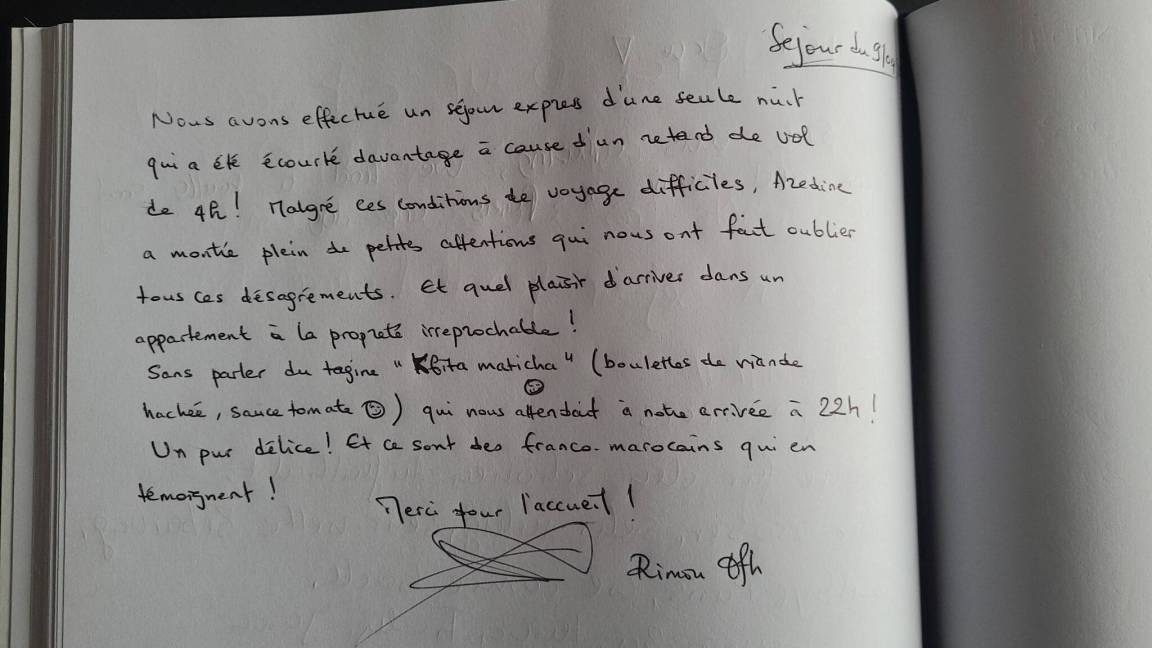 Sejour du 9/04
Nous avons effectué un séjour express d'une seule nuit
qui a été écourté davantage à cause d'un retard de vol
de 4h ! Malgré ces conditions de voyage difficiles, Azedine
a montré plein de petites attentions qui nous ont fait oublier
tous ces désagréments. Et quel plaisir d'arriver dans un
appartement à la propreté irreprochable !
Sans parler du tagine "Kfita maticha" (boulettes de viande
hachée, sauce tomate ☺) qui nous attendait à notre arrivée à 22h !
Un pur délice ! Et ce sont des franco-marocains qui en
témoignent !
Merci pour l'accueil !
Rimou